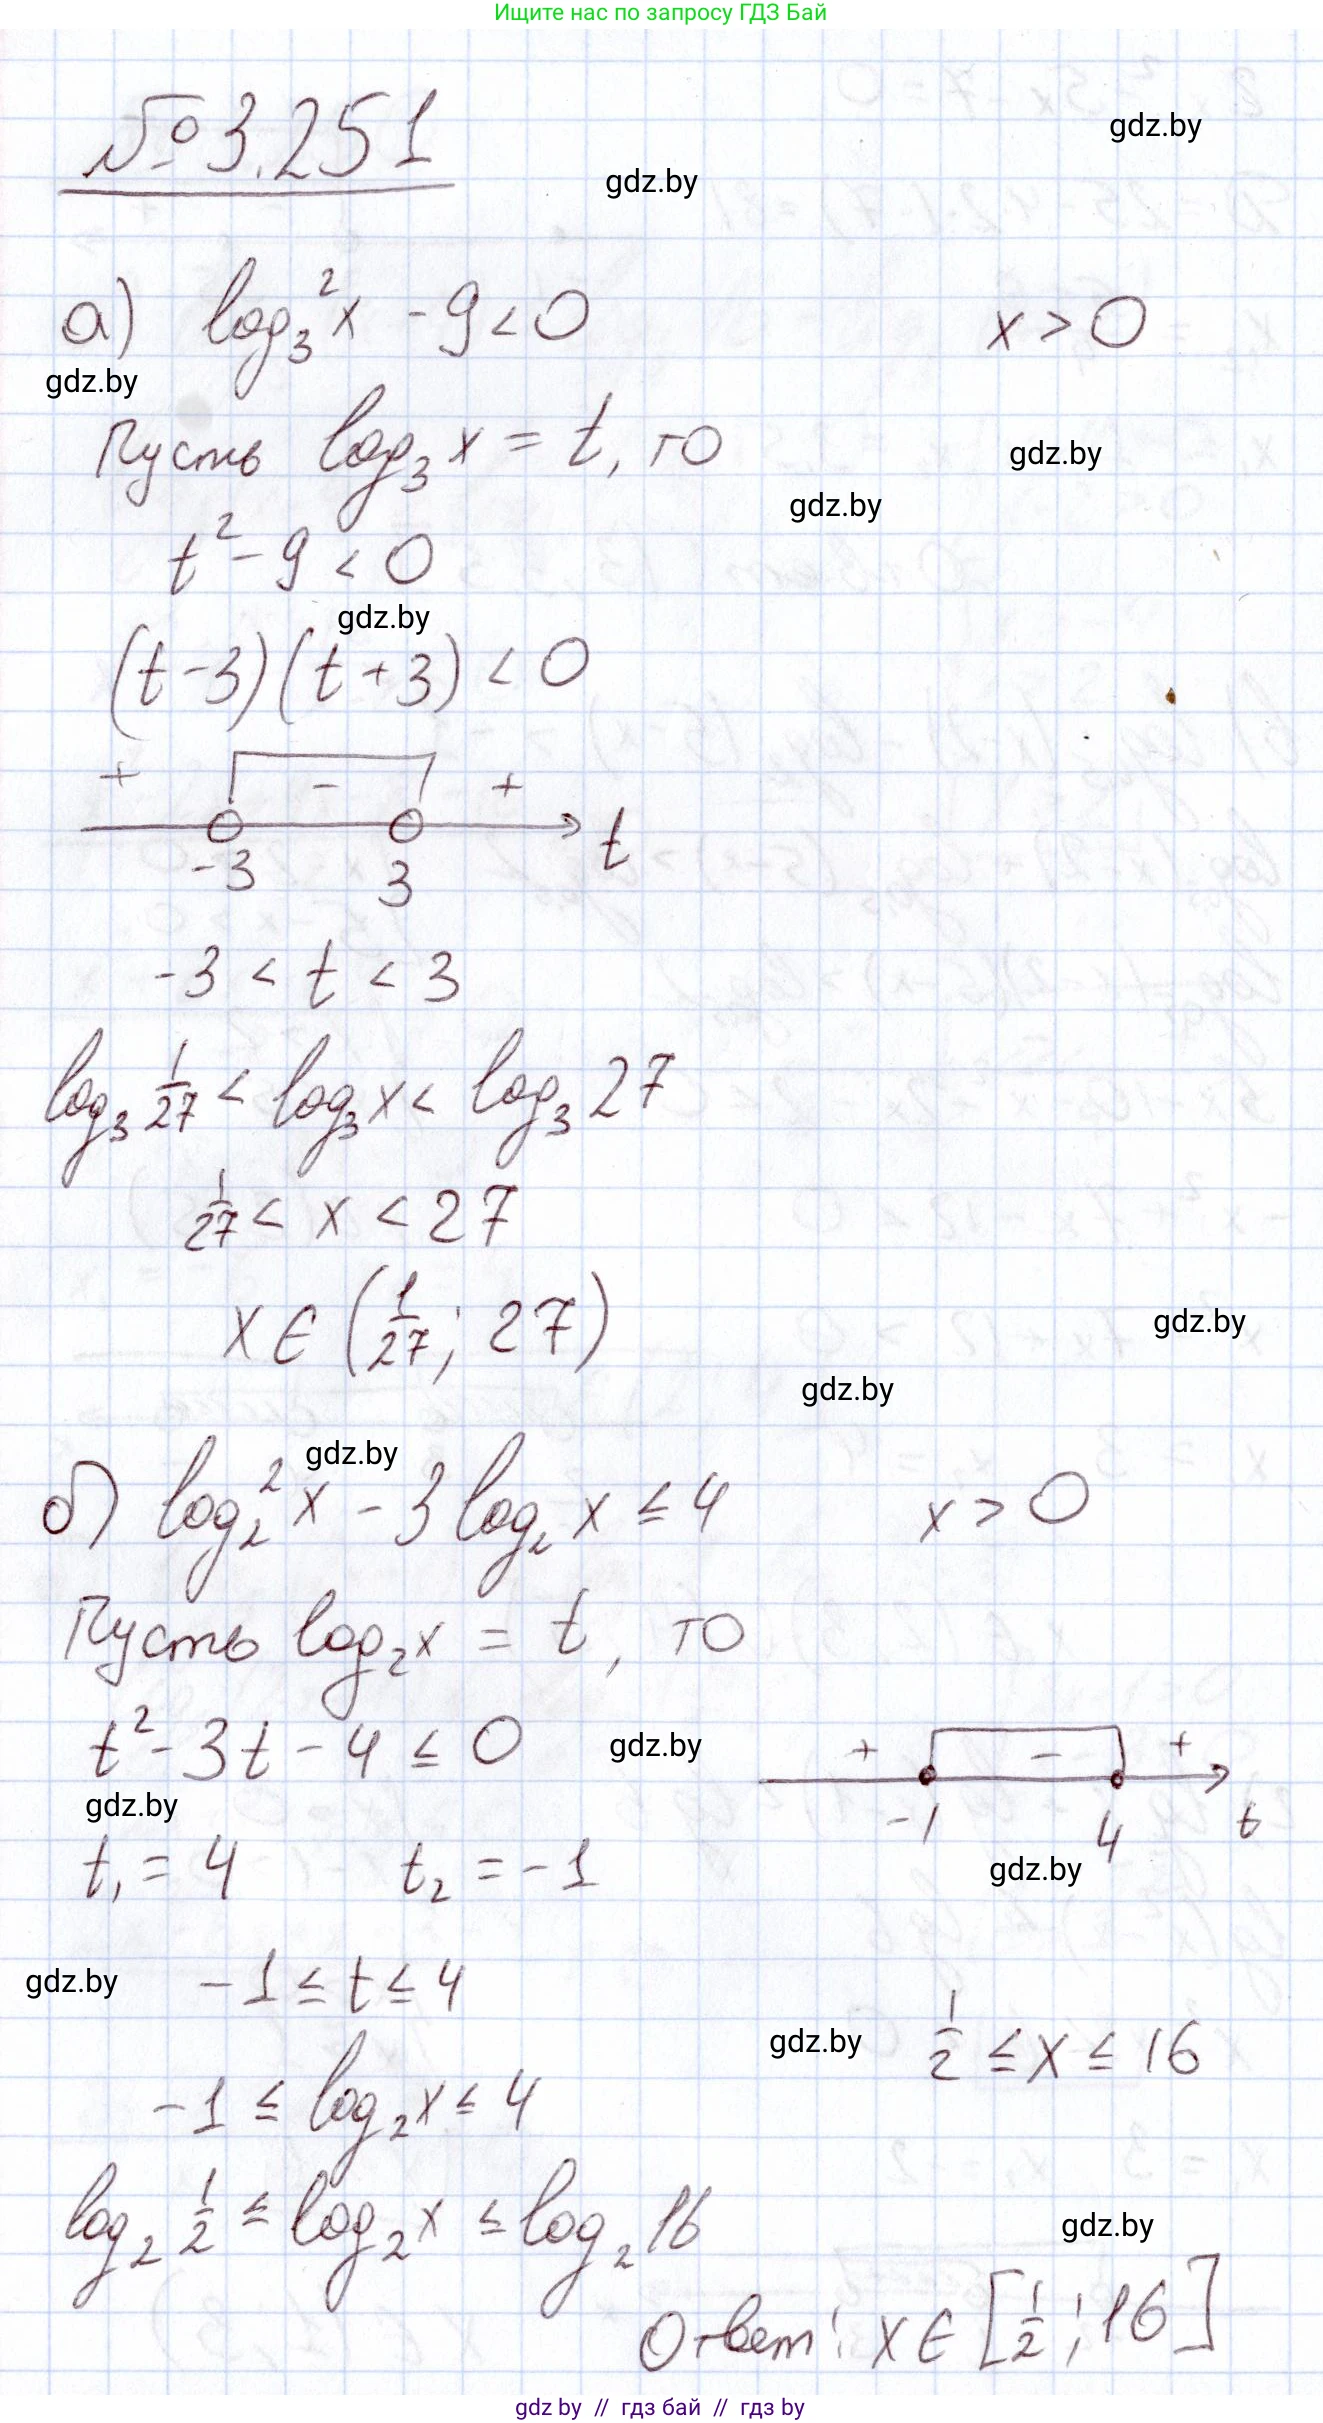 Ищите нас по запросу ГДЗ Бай
№ 3.251
gdz.by
gdz.by
а) log₃²x - 9 < 0
x > 0
gdz.by
Пусть log₃x = t, то
gdz.by
gdz.by
t² - 9 < 0
gdz.by
(t - 3)(t + 3) < 0
+ - +
-3 3 t
-3 < t < 3
log₃ 1/27 < log₃x < log₃ 27
1/27 < x < 27
x ∈ (1/27; 27)
gdz.by
gdz.by
gdz.by
б) log₂²x - 3 log₂x ≤ 4
x > 0
Пусть log₂x = t, то
t² - 3t - 4 ≤ 0
gdz.by
+ - +
-1 4 t
gdz.by
gdz.by
t₁ = 4 t₂ = -1
gdz.by
-1 ≤ t ≤ 4
gdz.by
1/2 ≤ x ≤ 16
-1 ≤ log₂x ≤ 4
log₂ 1/2 ≤ log₂x ≤ log₂ 16
gdz.by
Ответ: x ∈ [1/2; 16]
gdz by // гдз бай // гдз by